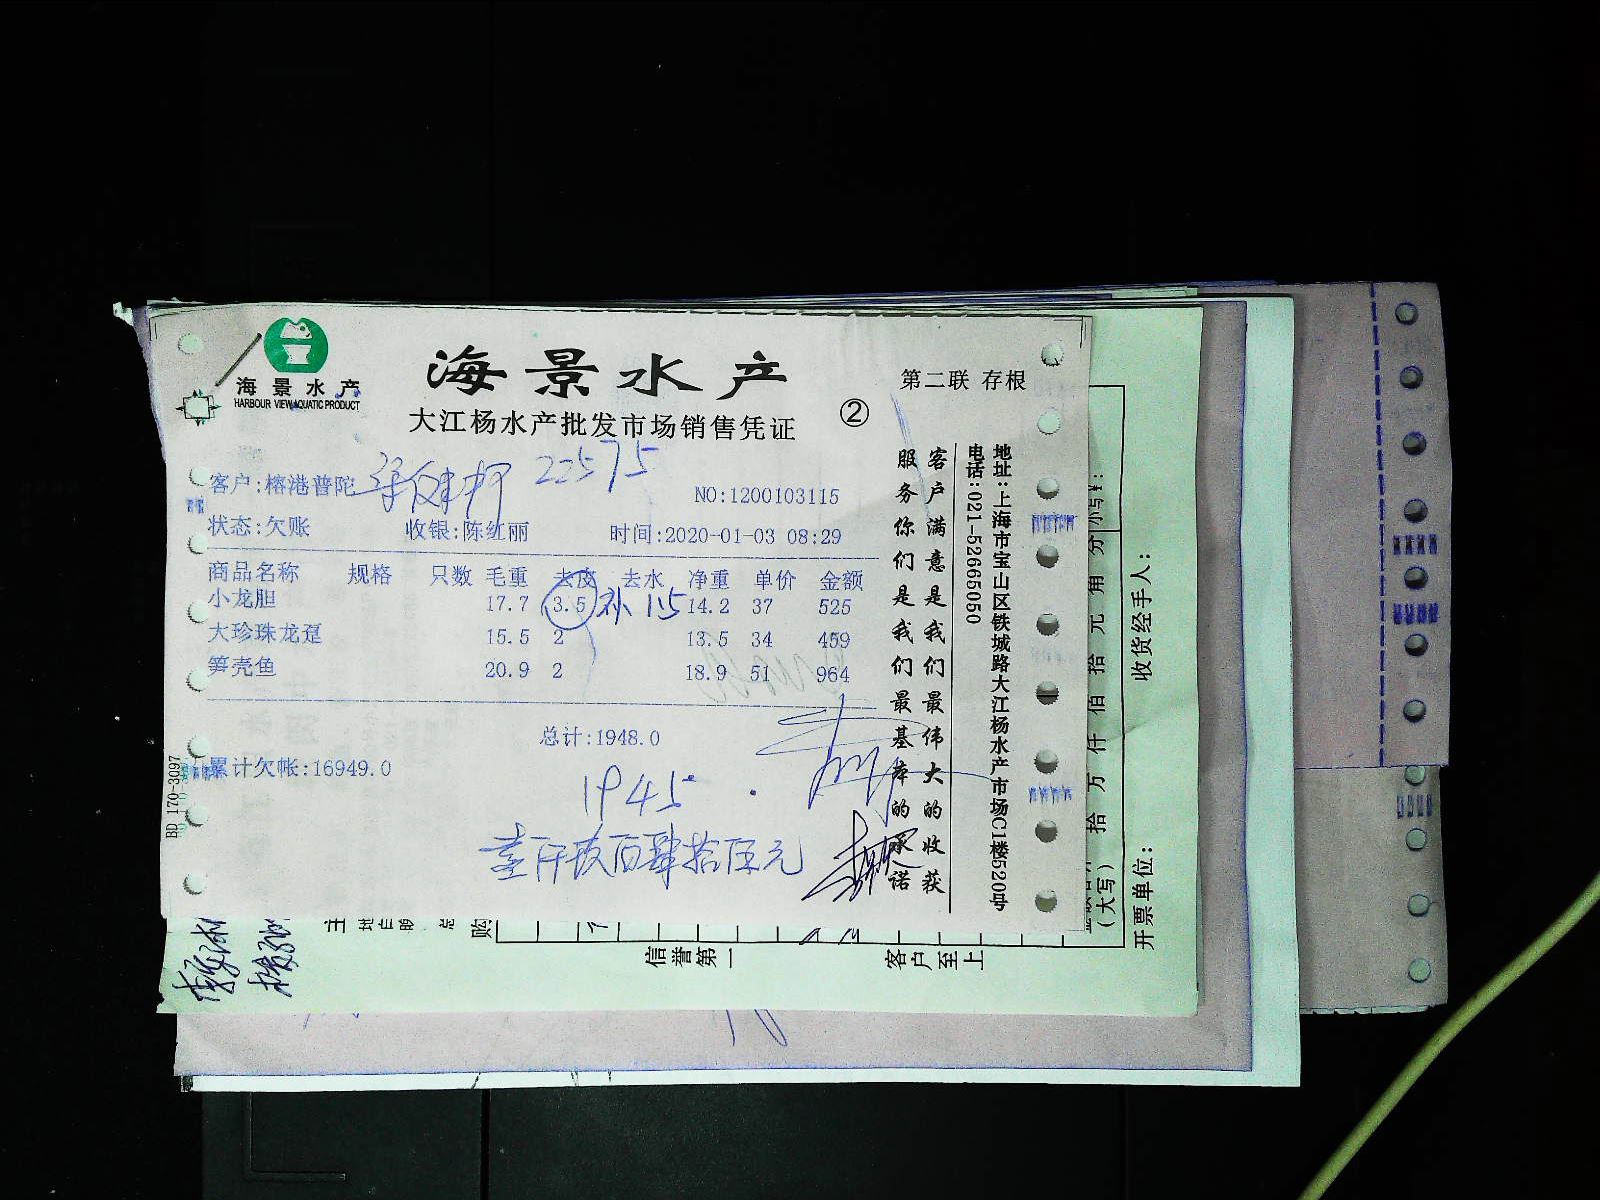 海景水产
HARBOUR VIEW AQUATIC PRODUCT
海景水产
大江杨水产批发市场销售凭证
②
第二联 存根
客户:榕港普陀
22575
NO:1200103115
状态:欠账 收银:陈红丽 时间:2020-01-03 08:29
商品名称 规格 只数 毛重 去皮 去水 净重 单价 金额
小龙胆 17.7 3.5 补 115 14.2 37 525
大珍珠龙趸 15.5 2 13.5 34 459
笋壳鱼 20.9 2 18.9 51 964
总计:1948.0
累计欠帐:16949.0
1945.
壹仟玖百肆拾伍元
BD 170-3097
客户满意是我们最伟大的收获
服务你们是我们最基本的承诺
地址:上海市宝山区铁城路大江杨水产市场C1楼520号
电话:021-52665050
拾万仟佰拾元角分
(大写)
收货经手人:
开票单位:
信誉第一
客户至上